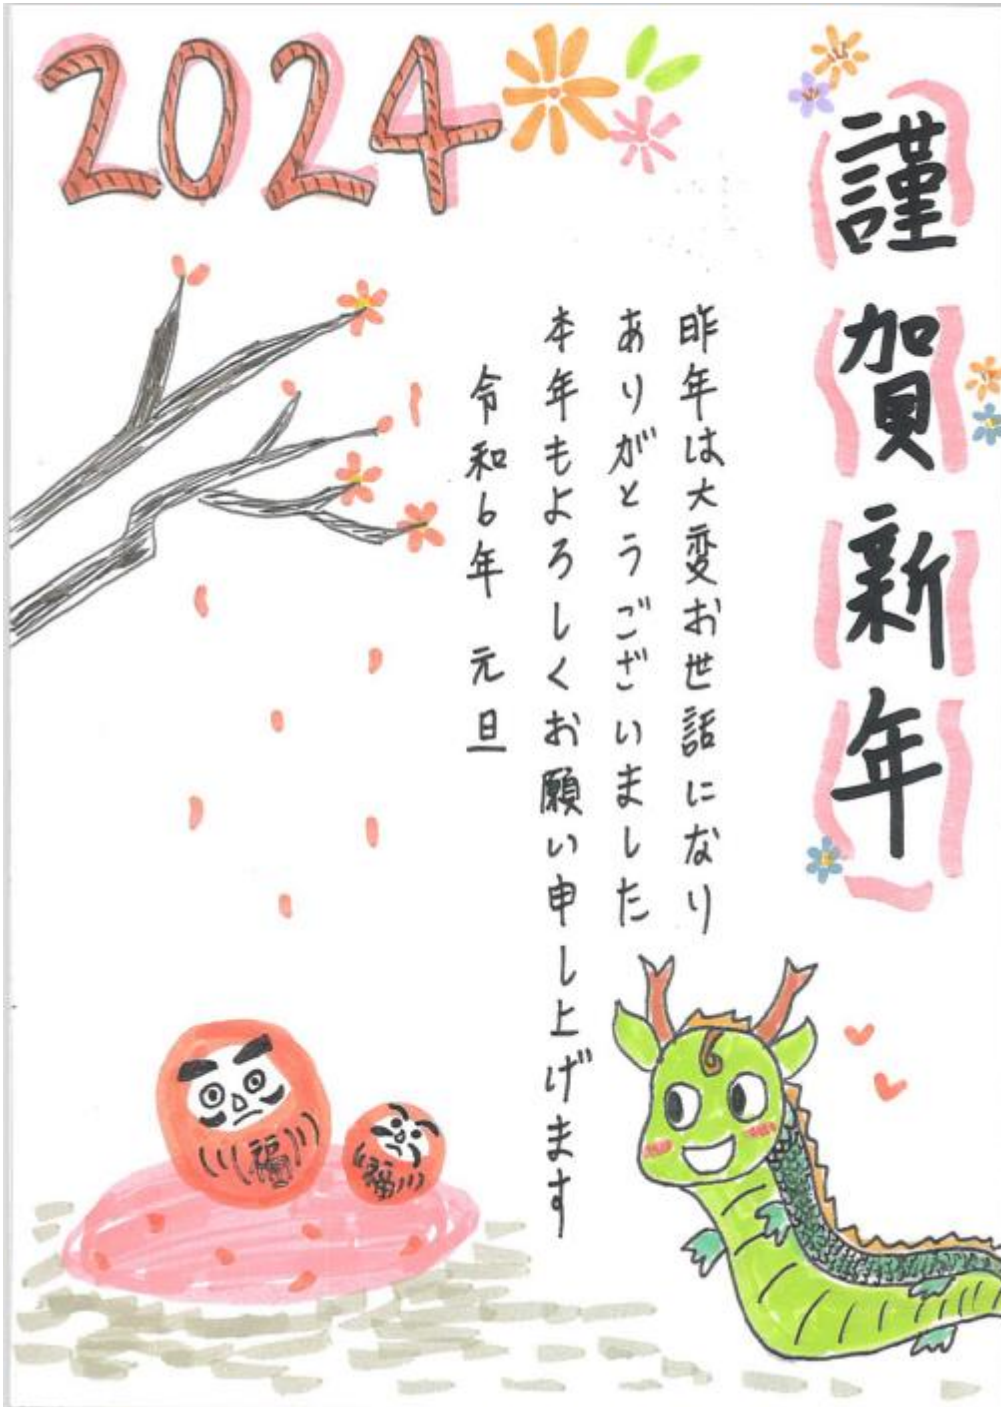 2024
謹賀新年
昨年は大変お世話になり
ありがとうございました
本年もよろしくお願い申し上げます
令和6年 元旦
福
福